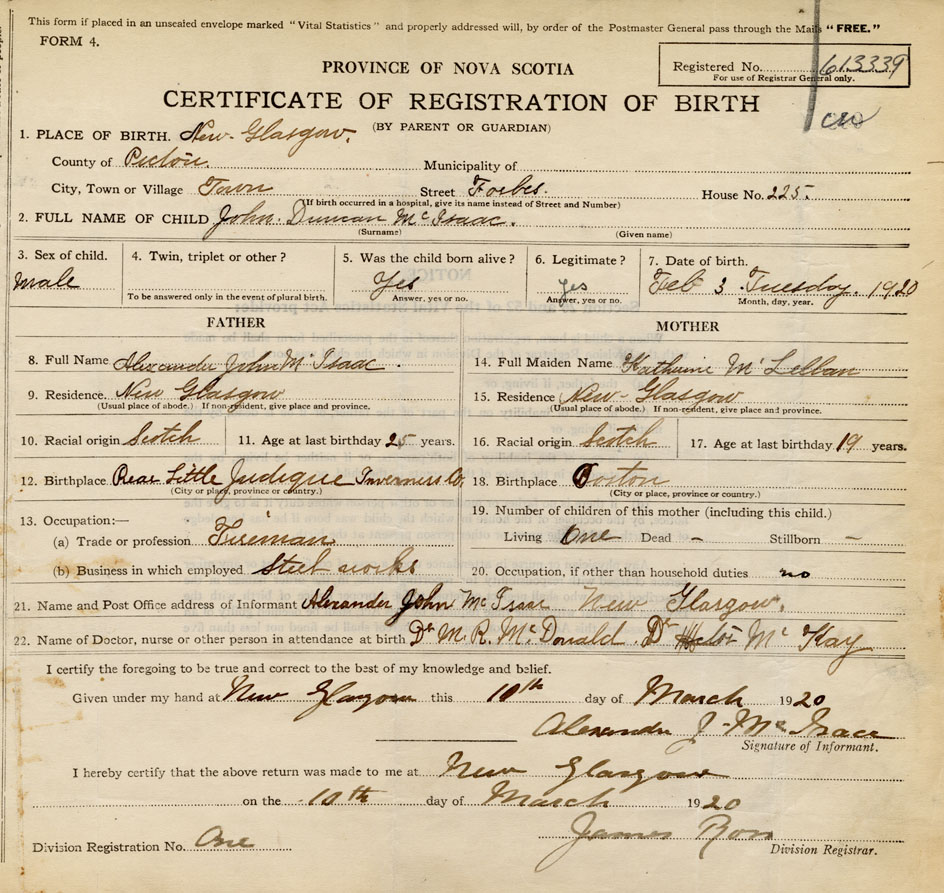 This form if placed in an unsealed envelope marked "Vital Statistics" and properly addressed will, by order of the Postmaster General pass through the Mails "FREE."
FORM 4.
Registered No. 613339
For use of Registrar General only.
PROVINCE OF NOVA SCOTIA
CERTIFICATE OF REGISTRATION OF BIRTH
(BY PARENT OR GUARDIAN)
1. PLACE OF BIRTH. New-Glasgow.
County of Pictou. Municipality of
City, Town or Village Town Street Forbes. House No. 225.
(If birth occurred in a hospital, give its name instead of Street and Number)
2. FULL NAME OF CHILD John Duncan Mc Isaac.
(Surname) (Given name)
3. Sex of child. 4. Twin, triplet or other? 5. Was the child born alive? 6. Legitimate? 7. Date of birth.
male Yes yes Feb 3 Tuesday. 1920
To be answered only in the event of plural birth. Answer, yes or no. Answer, yes or no. Month, day, year.
FATHER MOTHER
8. Full Name Alexander John Mc Isaac 14. Full Maiden Name Katherine Mc Lellan
9. Residence. New Glasgow 15. Residence New-Glasgow
(Usual place of abode.) If non-resident, give place and province. (Usual place of abode.) If non-resident, give place and province.
10. Racial origin Scotch 11. Age at last birthday 25 years. 16. Racial origin Scotch 17. Age at last birthday 19 years.
12. Birthplace Rear Little Judique Inverness Co. 18. Birthplace Boston
(City or place, province or country.) (City or place, province or country.)
13. Occupation:— 19. Number of children of this mother (including this child.)
(a) Trade or profession Fireman Living One Dead - Stillborn -
(b) Business in which employed Steel works 20. Occupation, if other than household duties no
21. Name and Post Office address of Informant Alexander John Mc Isaac New Glasgow.
22. Name of Doctor, nurse or other person in attendance at birth Dr M. R. Mc Donald. Dr Mc Kay
I certify the foregoing to be true and correct to the best of my knowledge and belief.
Given under my hand at New Glasgow this 10th day of March 1920
Alexander J. Mc Isaac
Signature of Informant.
I hereby certify that the above return was made to me at New Glasgow
on the 10th day of March 1920
James Ross
Division Registration No. One Division Registrar.